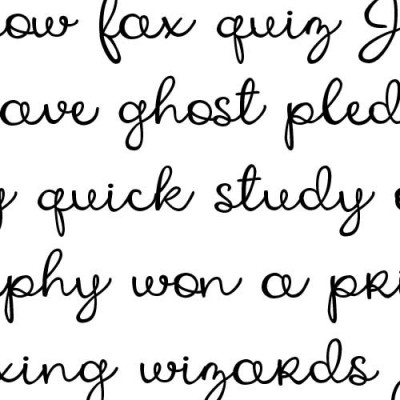 ow fax quiz J
ave ghost pled
y quick study
phy won a pri
xing wizards